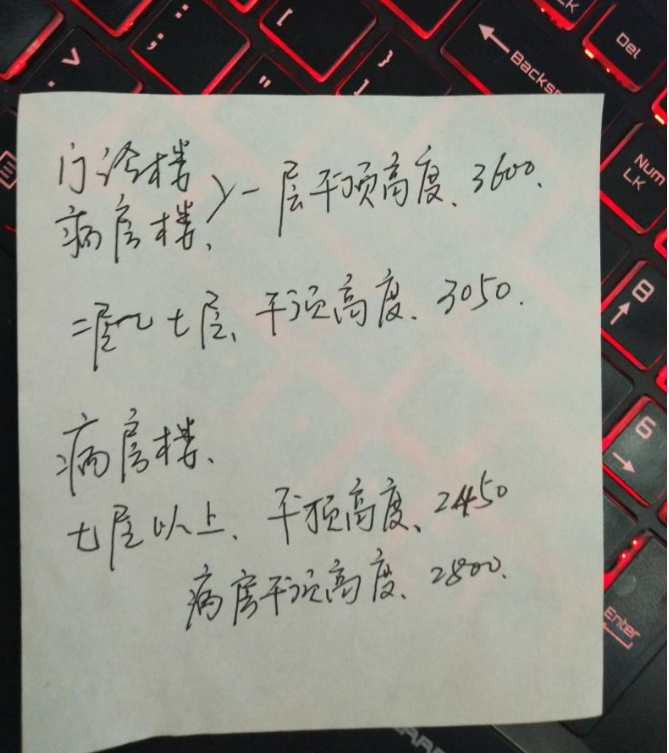 门诊楼
病房楼、
>一层平顶高度、3600.
二层~七层、平顶高度、3050.
病房楼、
七层以上、平顶高度、2450
病房平顶高度、2800.
Backsp
Del
Num
LK
8
6
Enter